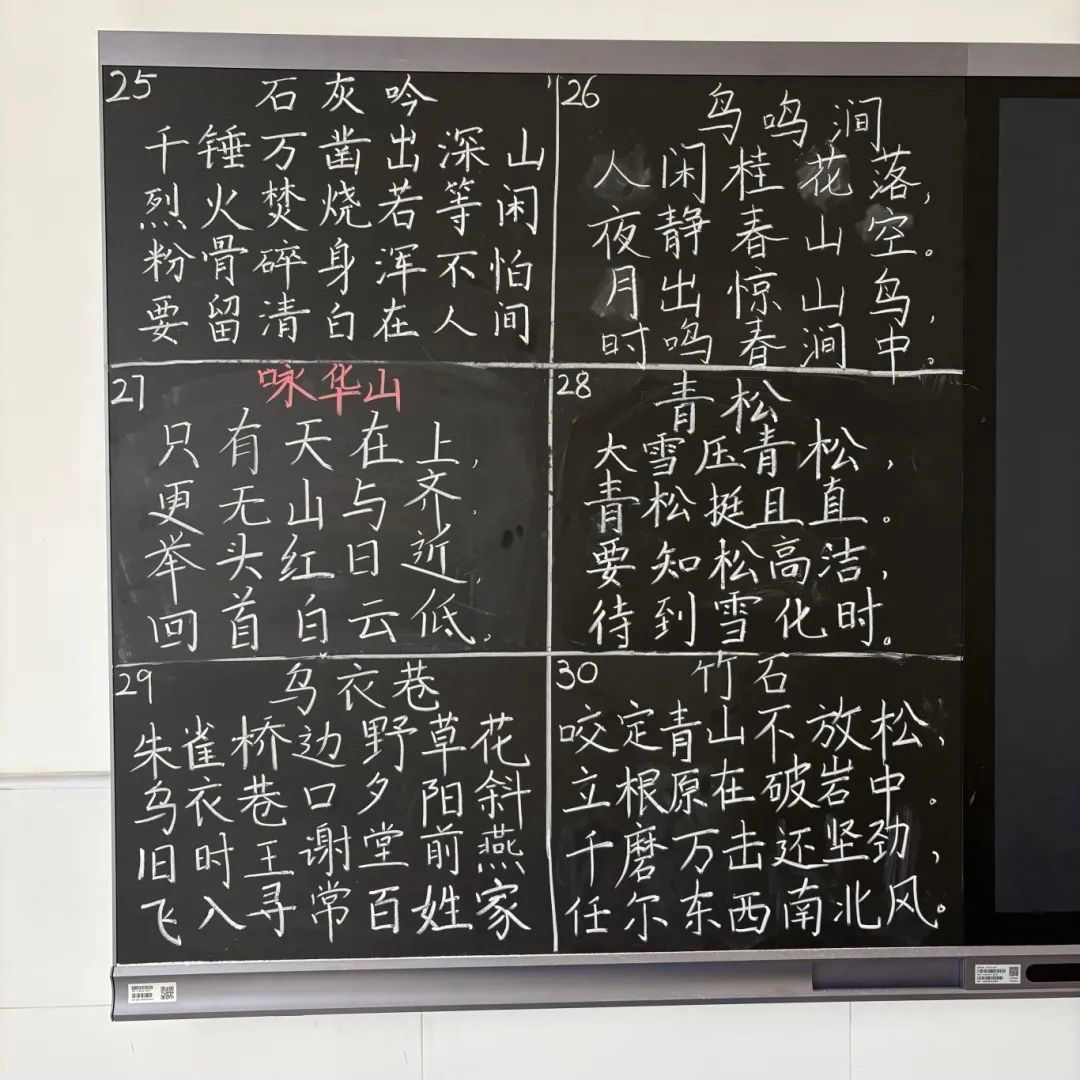 25
石灰吟
千锤万凿出深山
烈火焚烧若等闲
粉骨碎身浑不怕
要留清白在人间
26
鸟鸣涧
人闲桂花落，
夜静春山空。
月出惊山鸟，
时鸣春涧中。
27
咏华山
只有天在上，
更无山与齐，
举头红日近，
回首白云低。
28
青松
大雪压青松，
青松挺且直。
要知松高洁，
待到雪化时。
29
乌衣巷
朱雀桥边野草花
乌衣巷口夕阳斜
旧时王谢堂前燕
飞入寻常百姓家
30
竹石
咬定青山不放松，
立根原在破岩中。
千磨万击还坚劲，
任尔东西南北风。